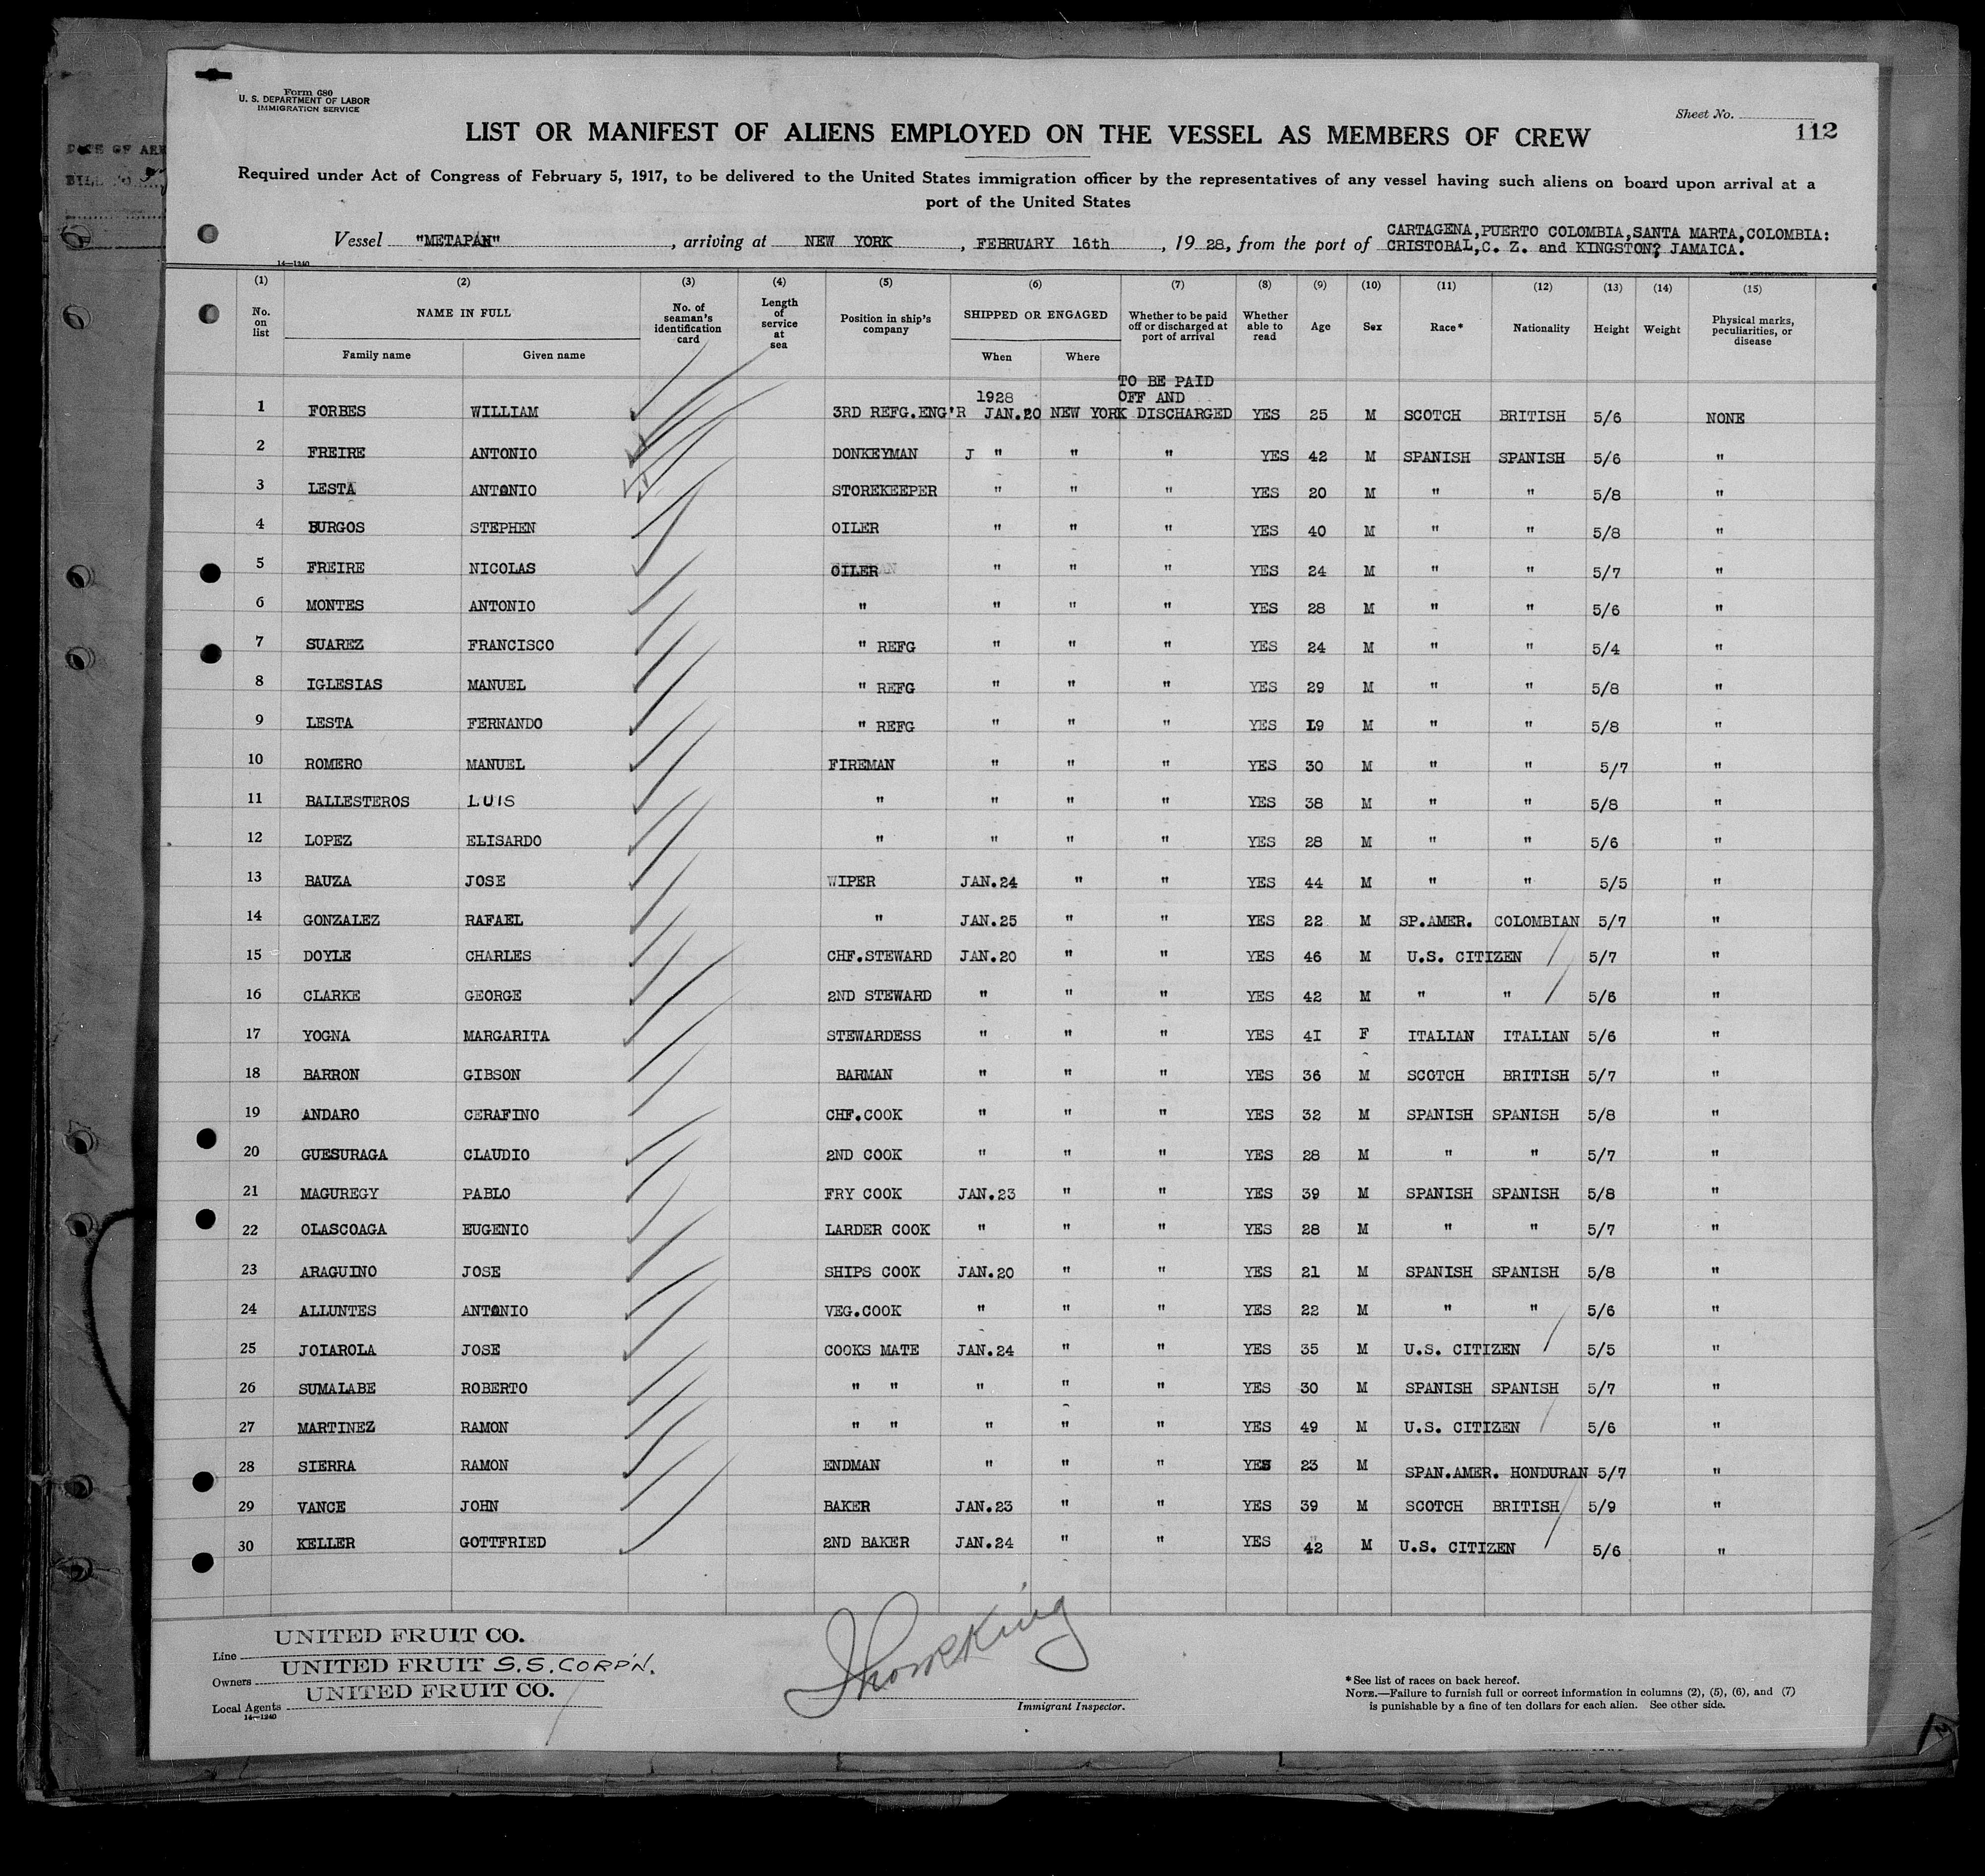 Form 680
U. S. DEPARTMENT OF LABOR
IMMIGRATION SERVICE
Sheet No.
112
LIST OR MANIFEST OF ALIENS EMPLOYED ON THE VESSEL AS MEMBERS OF CREW
Required under Act of Congress of February 5, 1917, to be delivered to the United States immigration officer by the representatives of any vessel having such aliens on board upon arrival at a
port of the United States
Vessel "METAPAN", arriving at NEW YORK, FEBRUARY 16th, 1928, from the port of CARTAGENA, PUERTO COLOMBIA, SANTA MARTA, COLOMBIA:
CRISTOBAL, C. Z. and KINGSTON, JAMAICA.
14—1240
(1) (2) (3) (4) (5) (6) (7) (8) (9) (10) (11) (12) (13) (14) (15)
No. on list
NAME IN FULL
Family name Given name
No. of seaman's identification card
Length of service at sea
Position in ship's company
SHIPPED OR ENGAGED
When Where
Whether to be paid off or discharged at port of arrival
Whether able to read
Age Sex Race* Nationality Height Weight
Physical marks, peculiarities, or disease
1928 TO BE PAID OFF AND
1 FORBES WILLIAM 3RD REFG.ENG'R JAN.20 NEW YORK DISCHARGED YES 25 M SCOTCH BRITISH 5/6 NONE
2 FREIRE ANTONIO DONKEYMAN J " " " YES 42 M SPANISH SPANISH 5/6 "
3 LESTA ANTONIO STOREKEEPER " " " YES 20 M " " 5/8 "
4 BURGOS STEPHEN OILER " " " YES 40 M " " 5/8 "
5 FREIRE NICOLAS OILER " " " YES 24 M " " 5/7 "
6 MONTES ANTONIO " " " " YES 28 M " " 5/6 "
7 SUAREZ FRANCISCO " REFG " " " YES 24 M " " 5/4 "
8 IGLESIAS MANUEL " REFG " " " YES 29 M " " 5/8 "
9 LESTA FERNANDO " REFG " " " YES 19 M " " 5/8 "
10 ROMERO MANUEL FIREMAN " " " YES 30 M " " 5/7 "
11 BALLESTEROS LUIS " " " " YES 38 M " " 5/8 "
12 LOPEZ ELISARDO " " " " YES 28 M " " 5/6 "
13 BAUZA JOSE WIPER JAN.24 " " YES 44 M " " 5/5 "
14 GONZALEZ RAFAEL " JAN.25 " " YES 22 M SP.AMER. COLOMBIAN 5/7 "
15 DOYLE CHARLES CHF.STEWARD JAN.20 " " YES 46 M U.S. CITIZEN 5/7 "
16 CLARKE GEORGE 2ND STEWARD " " " YES 42 M " " 5/6 "
17 YOGNA MARGARITA STEWARDESS " " " YES 41 F ITALIAN ITALIAN 5/6 "
18 BARRON GIBSON BARMAN " " " YES 36 M SCOTCH BRITISH 5/7 "
19 ANDARO CERAFINO CHF.COOK " " " YES 32 M SPANISH SPANISH 5/8 "
20 GUESURAGA CLAUDIO 2ND COOK " " " YES 28 M " " 5/7 "
21 MAGUREGY PABLO FRY COOK JAN.23 " " YES 39 M SPANISH SPANISH 5/8 "
22 OLASCOAGA EUGENIO LARDER COOK " " " YES 28 M " " 5/7 "
23 ARAGUINO JOSE SHIPS COOK JAN.20 " " YES 21 M SPANISH SPANISH 5/8 "
24 ALLUNTES ANTONIO VEG.COOK " " " YES 22 M " " 5/6 "
25 JOIAROLA JOSE COOKS MATE JAN.24 " " YES 35 M U.S. CITIZEN 5/5 "
26 SUMALABE ROBERTO " " " " " YES 30 M SPANISH SPANISH 5/7 "
27 MARTINEZ RAMON " " " " " YES 49 M U.S. CITIZEN 5/6 "
28 SIERRA RAMON ENDMAN " " " YES 23 M SPAN.AMER. HONDURAN 5/7 "
29 VANCE JOHN BAKER JAN.23 " " YES 39 M SCOTCH BRITISH 5/9 "
30 KELLER GOTTFRIED 2ND BAKER JAN.24 " " YES 42 M U.S. CITIZEN 5/6 "
Line UNITED FRUIT CO.
Owners UNITED FRUIT S.S. CORP'N.
Local Agents UNITED FRUIT CO.
14—1240
Immigrant Inspector.
*See list of races on back hereof.
NOTE.—Failure to furnish full or correct information in columns (2), (5), (6), and (7)
is punishable by a fine of ten dollars for each alien. See other side.